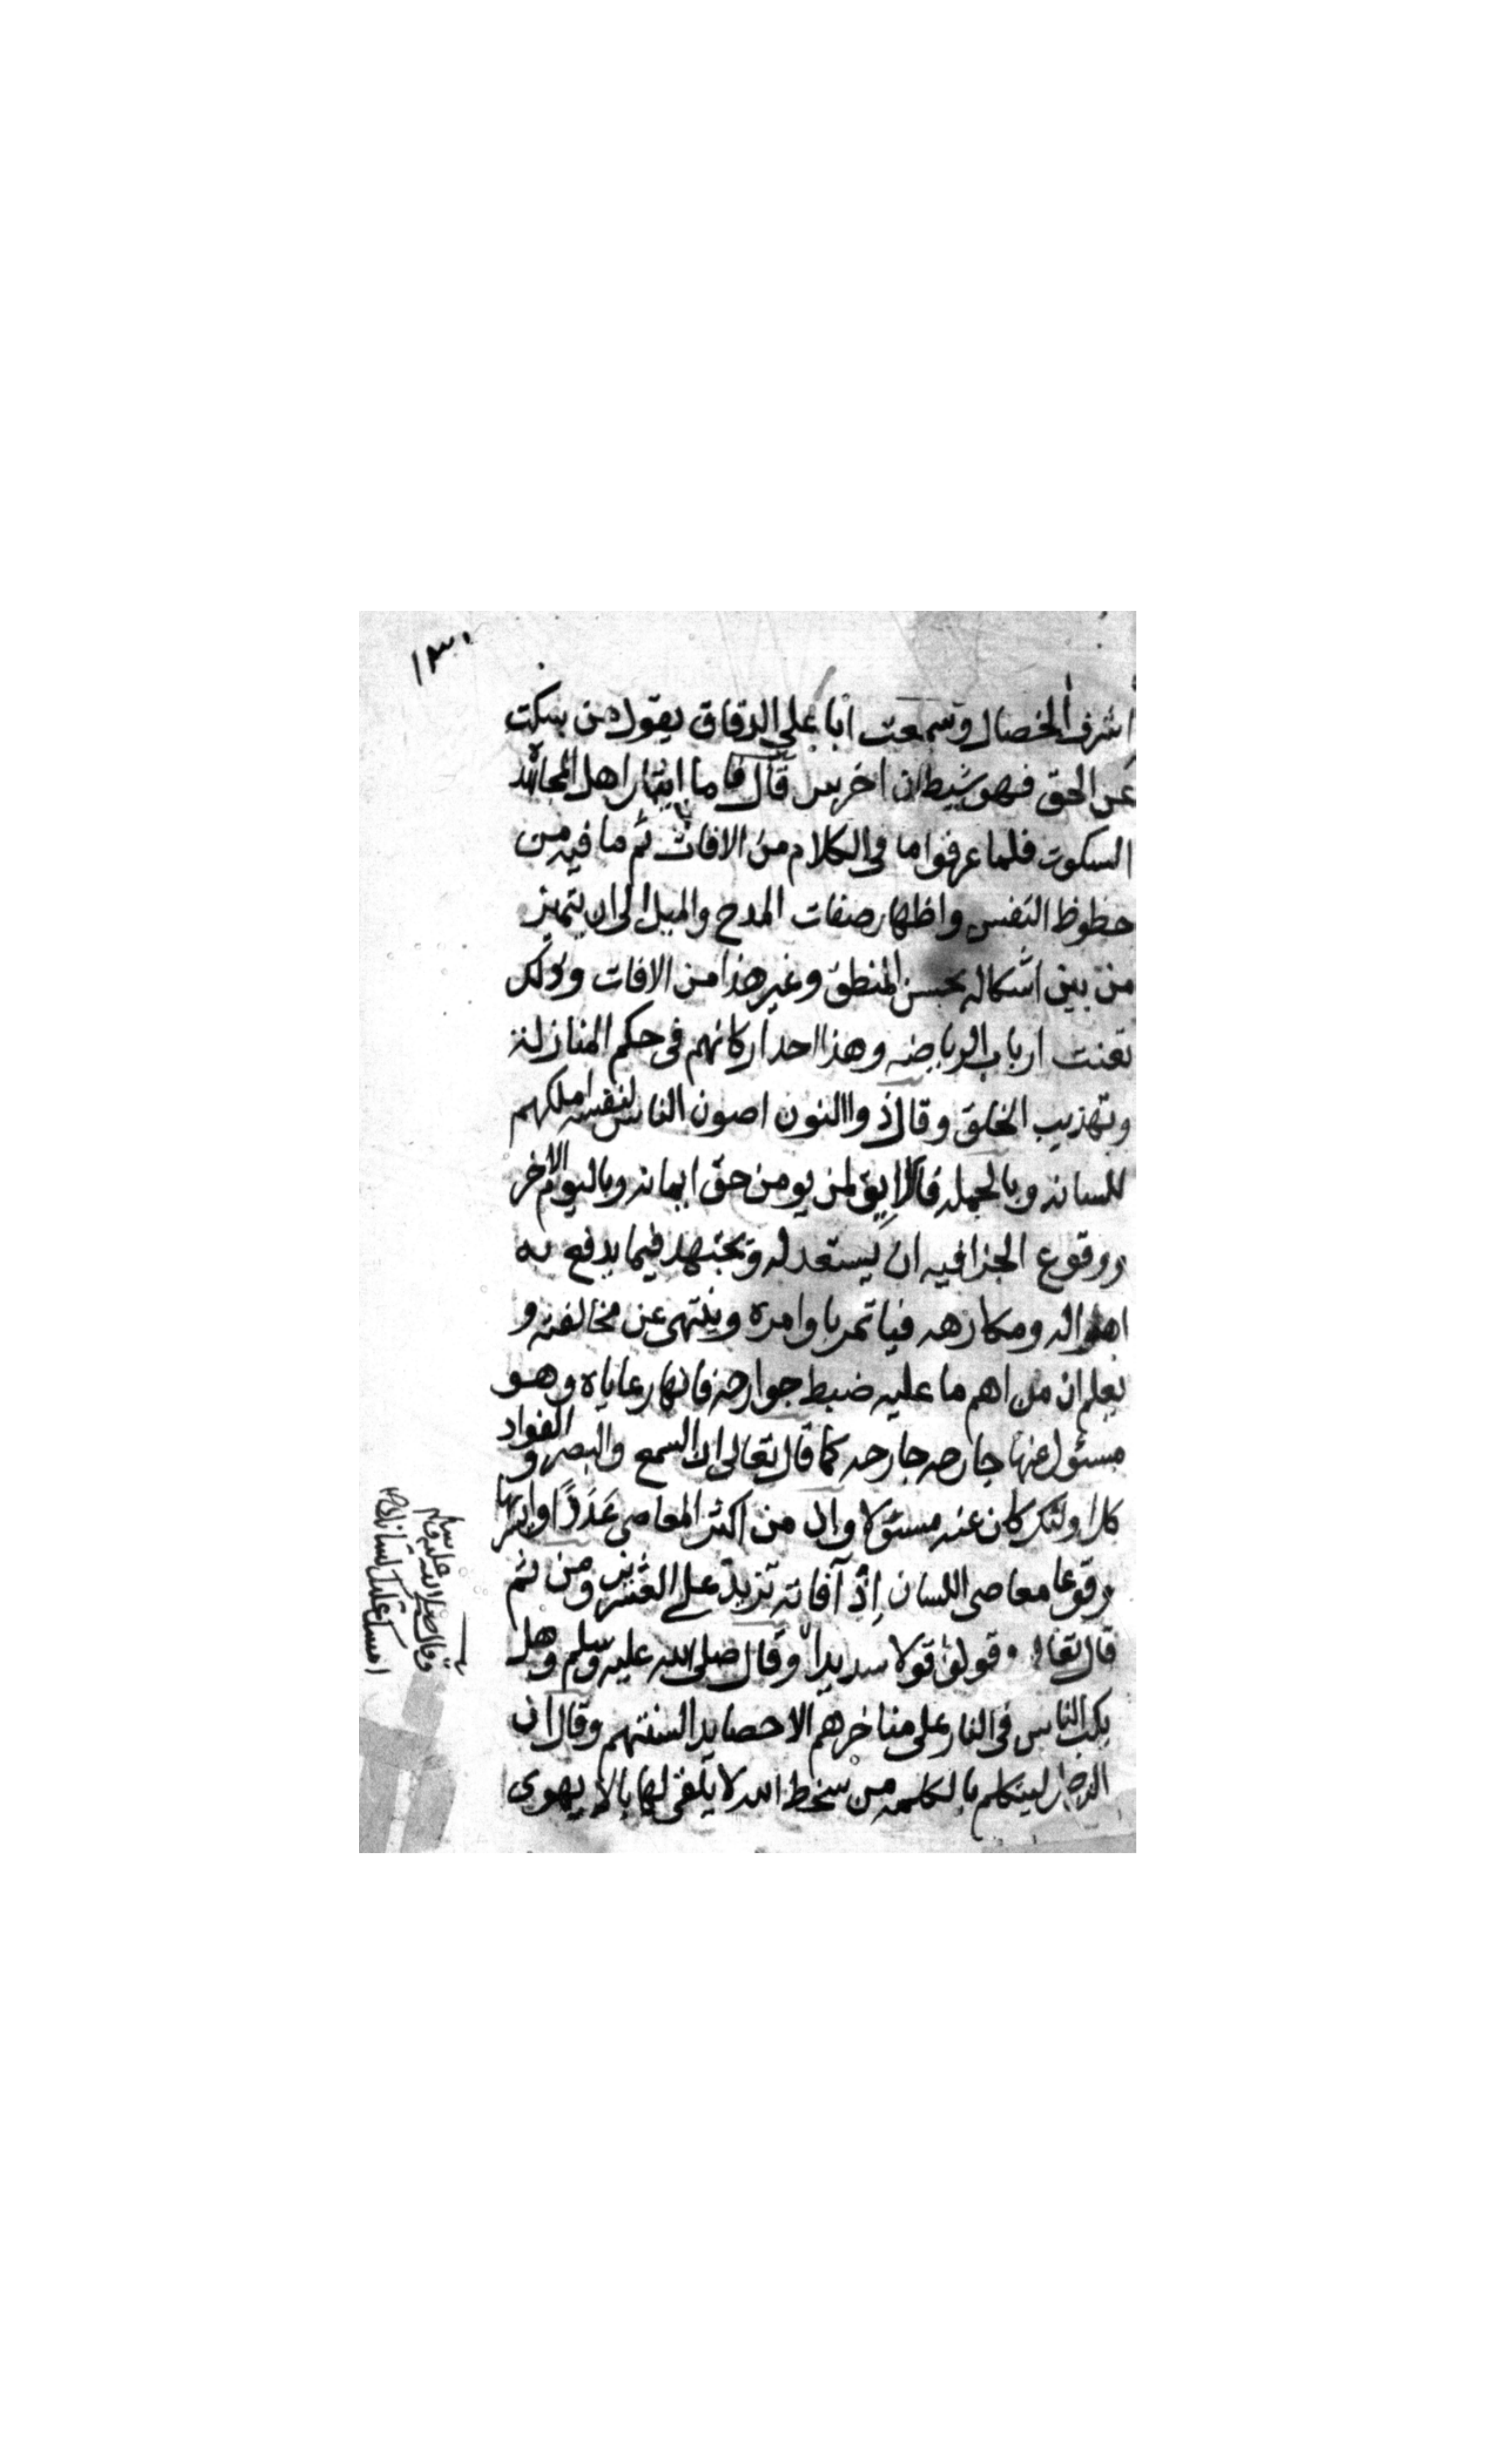 ١٣٠
أشرف الخصال وسمعت أبا علي الدقاق يقول من سكت
عن الحق فهو شيطان اخرس قال فاما ايثار اهل المجاهدة
السكوت فلما عرفوا ما في الكلام من الافات ثم ما فيه من
حظوظ النفس واظهار صفات المدح والميل الى ان يتميز
من بين اشكاله بحسن المنطق وغير هذا من الافات وذلك
نعت ارباب الرياضه وهذا احد اركانهم في حكم المنازلة
وتهذيب الخلق وقال ذو االنون اصون الناس لنفسه املكهم
للسانه وبالجمله فاللايق لمن يومن حق ايمانه وباليوم الاخر
ووقوع الجزا فيه ان يستعد له ويجتهد فيما يدفع به
اهواله ومكارهه فياتمر باوامره وينتهي عن مخالفته و
يعلم ان من اهم ما عليه ضبط جوارحه فانها رعاياه وهو
مسئول عنها جارحه جارحه كما قال تعالى ان السمع والبصر والفواد
كل اولئك كان عنه مسئولا وان من اكثر المعاصي عَدَدًا وايسرها
وقوعا معاصي اللسان اذ آفاته تزيد على العشرين ومن ثم
قال تعالى وقولوا قولا سديدا وقال صلى الله عليه وسلم وهل
يكب الناس في النار على مناخرهم الا حصايد السنتهم وقال ان
الرجل ليتكلم بالكلمه من سخط الله لا يلقى لها بالا يهوى
وقال صلى الله عليه وسلم
امسك عليك لسانك